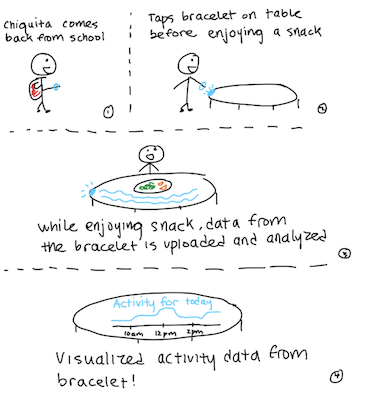 Chiquita comes
back from school
1
Taps bracelet on table
before enjoying a snack
2
while enjoying snack, data from
the bracelet is uploaded and analyzed
3
Activity for today
10am 12pm 2pm
Visualized activity data from
bracelet!
4